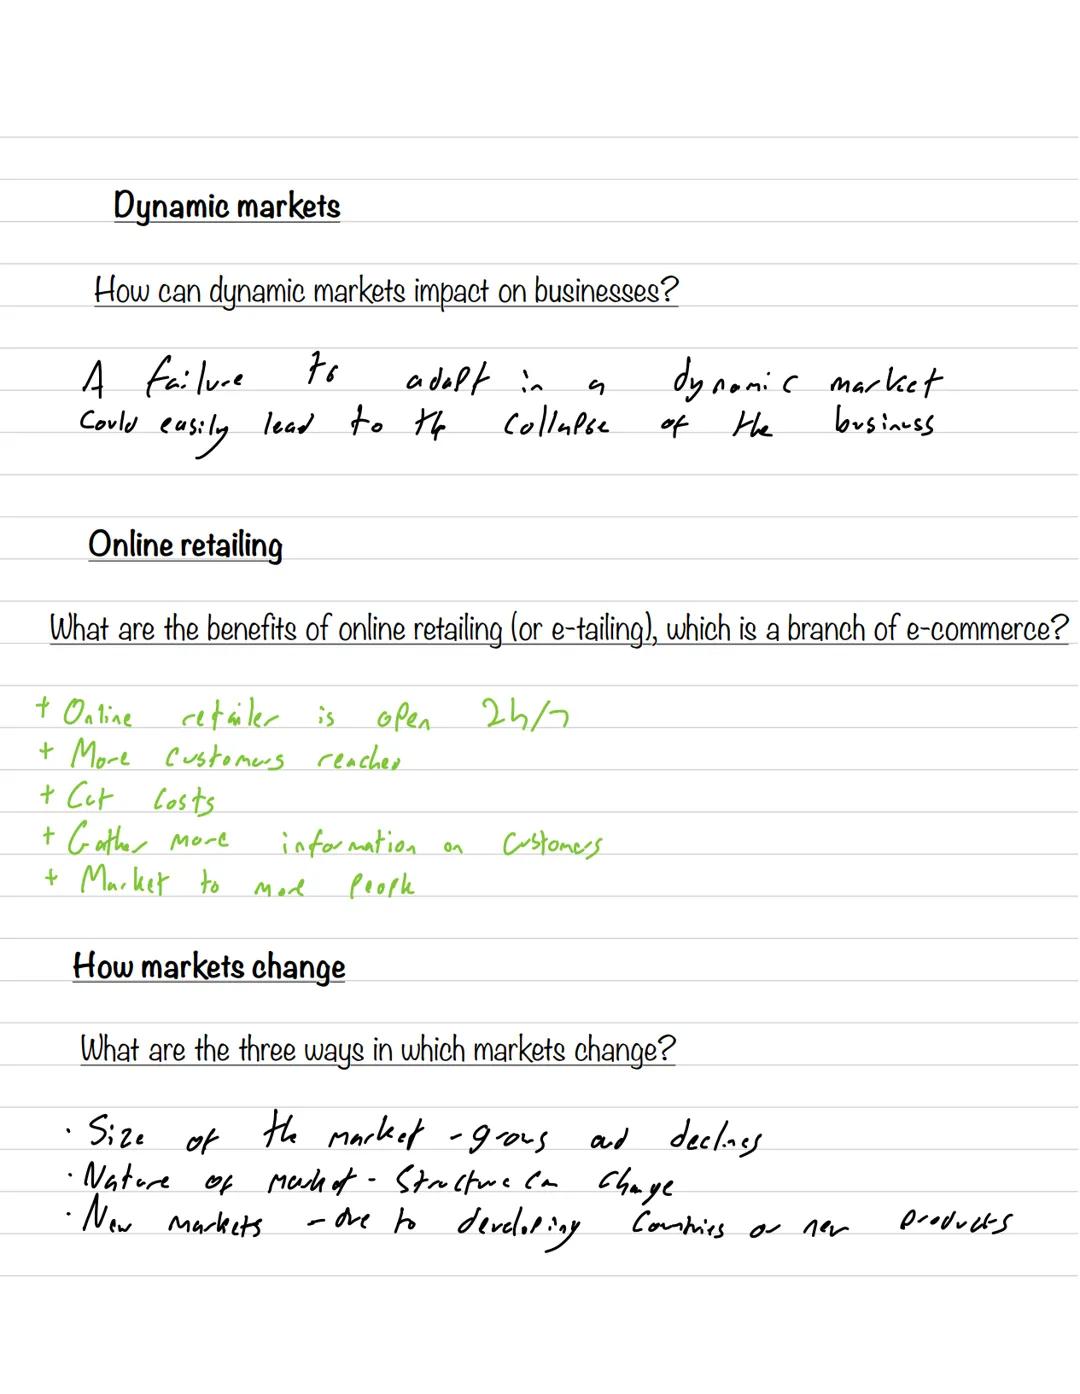 Dynamic markets
How can dynamic markets impact on businesses?
A failure to adapt in a dynamic market
Could easily lead to the collapse of the business
Online retailing
What are the benefits of online retailing (or e-tailing), which is a branch of e-commerce?
+ Online retailer is open 24/7
+ More customers reached
+ Cut costs
+ Gather more information on customers
+ Market to more people
How markets change
What are the three ways in which markets change?
· Size of the market - grows and declines
· Nature of market - Structure can change
· New markets - due to developing countries or new products